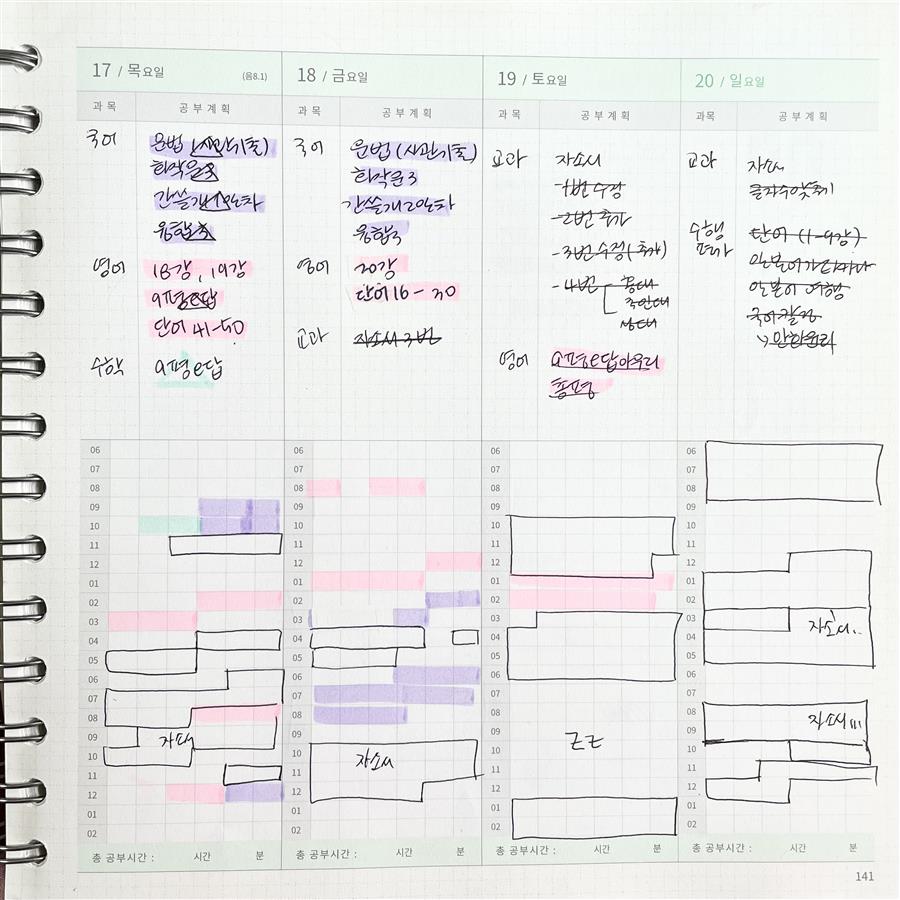 17 / 목요일 (음8.1)
과목 공부계획
국어 문법 (시관기출)
화작문3
간쓸개1 2차
융합3
영어 18강, 19강
9평 e답
단어 41-50
수학 9평 e답
06
07
08
09
10
11
12
01
02
03
04
05
06
07
08
09
10
11
12
01
02
자소서
총 공부시간 : 시간 분
18 / 금요일
과목 공부계획
국어 문법 (시관기출)
화작문3
간쓸개2
융합3
영어 20강
단어 16-30
교과 자소서 3번
06
07
08
09
10
11
12
01
02
03
04
05
06
07
08
09
10
11
12
01
02
자소서
총 공부시간 : 시간 분
19 / 토요일
과목 공부계획
교과 자소서
-1번 수정
-2번 추가
-3번 수정 (추가)
-4번
영어 9평 e답 마무리
총평
06
07
08
09
10
11
12
01
02
03
04
05
06
07
08
09
10
11
12
01
02
ZZ
총 공부시간 : 시간 분
20 / 일요일
과목 공부계획
교과 자소서
글자수 맞추기
수행평가 단어 (1-9강)
일본어
일본어 여행
국어
06
07
08
09
10
11
12
01
02
03
04
05
06
07
08
09
10
11
12
01
02
자소서..
자소서!!!
총 공부시간 : 시간 분
141